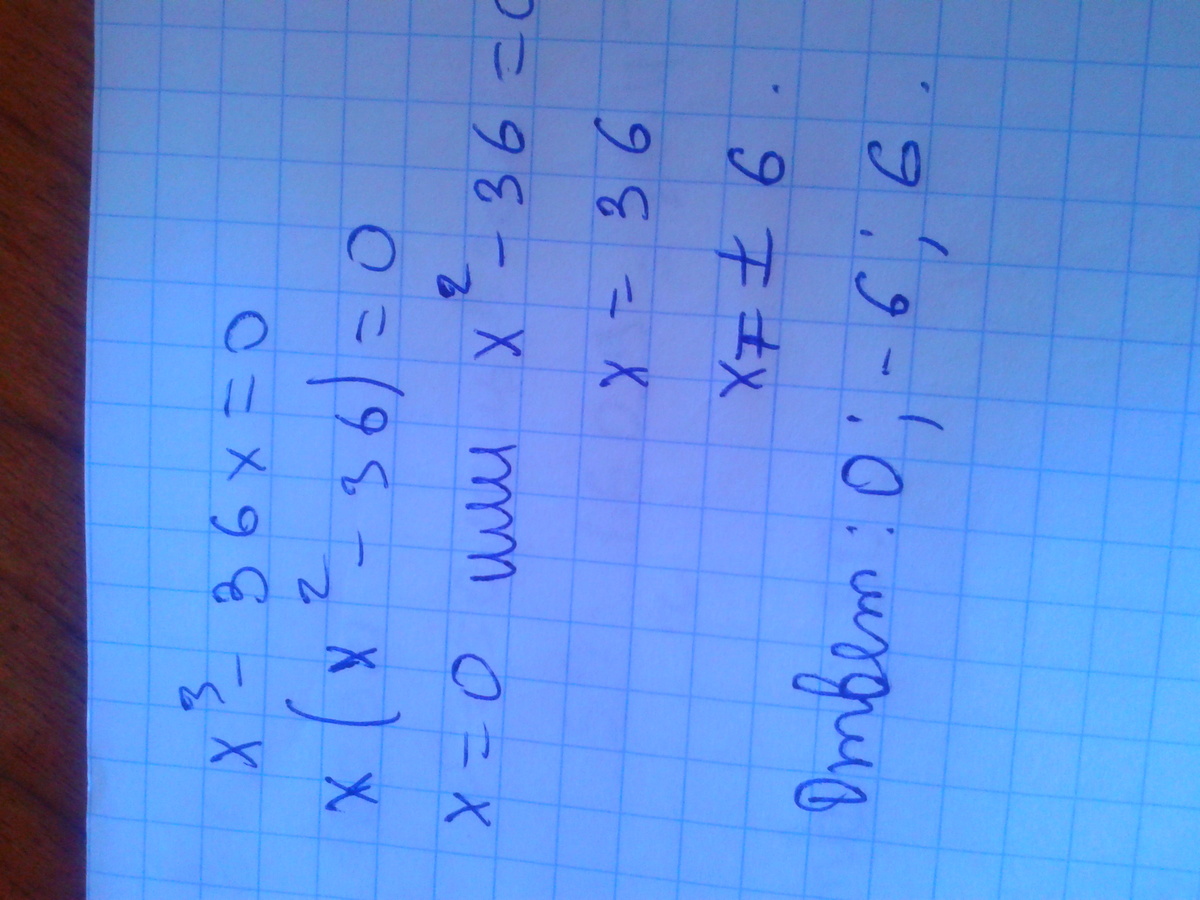 x³ - 36x = 0
x (x² - 36) = 0
x = 0 или x² - 36 = 0
x = 36
x = ± 6.
Ответ: 0; -6; 6.